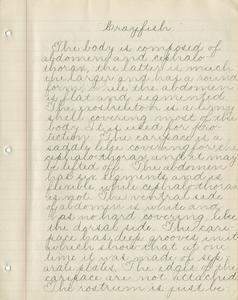 Crayfish.
The body is composed of
abdomen and cephalo-
thorax, the latter is much
the larger and has a round
form, while the abdomen
is flat and segmented.
The exoskeleton is a limy
shell covering most of the
body. It is used for pro-
tection. The carapace is a
saddle like covering for the
cephalothorax, and it may
be lifted off. The abdomen
has six segments, and is
flexible while cephalothorax
is not. The ventral side
of abdomen is white and
has no hard covering, like
the dorsal side. The cara-
pace has deep grooves in it
which show that at one
time it was made of sep-
arate plates. The edges of the
carapace are not attached.
The rostrum is just be-